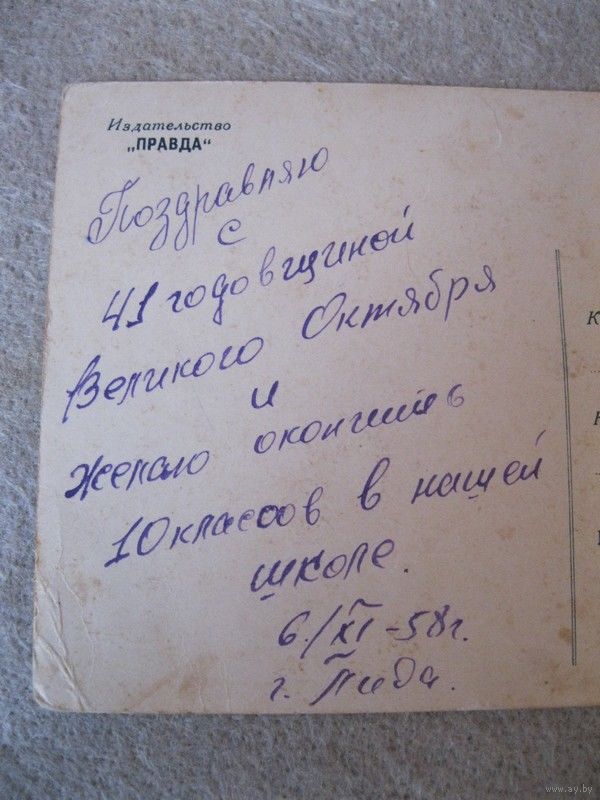 Издательство
„ПРАВДА“
Поздравляю
с
41 годовщиной
Великого Октября
и
желаю окончить
10 классов в нашей
школе.
6/XI-58г.
г. Лида.
К
www.ay.by